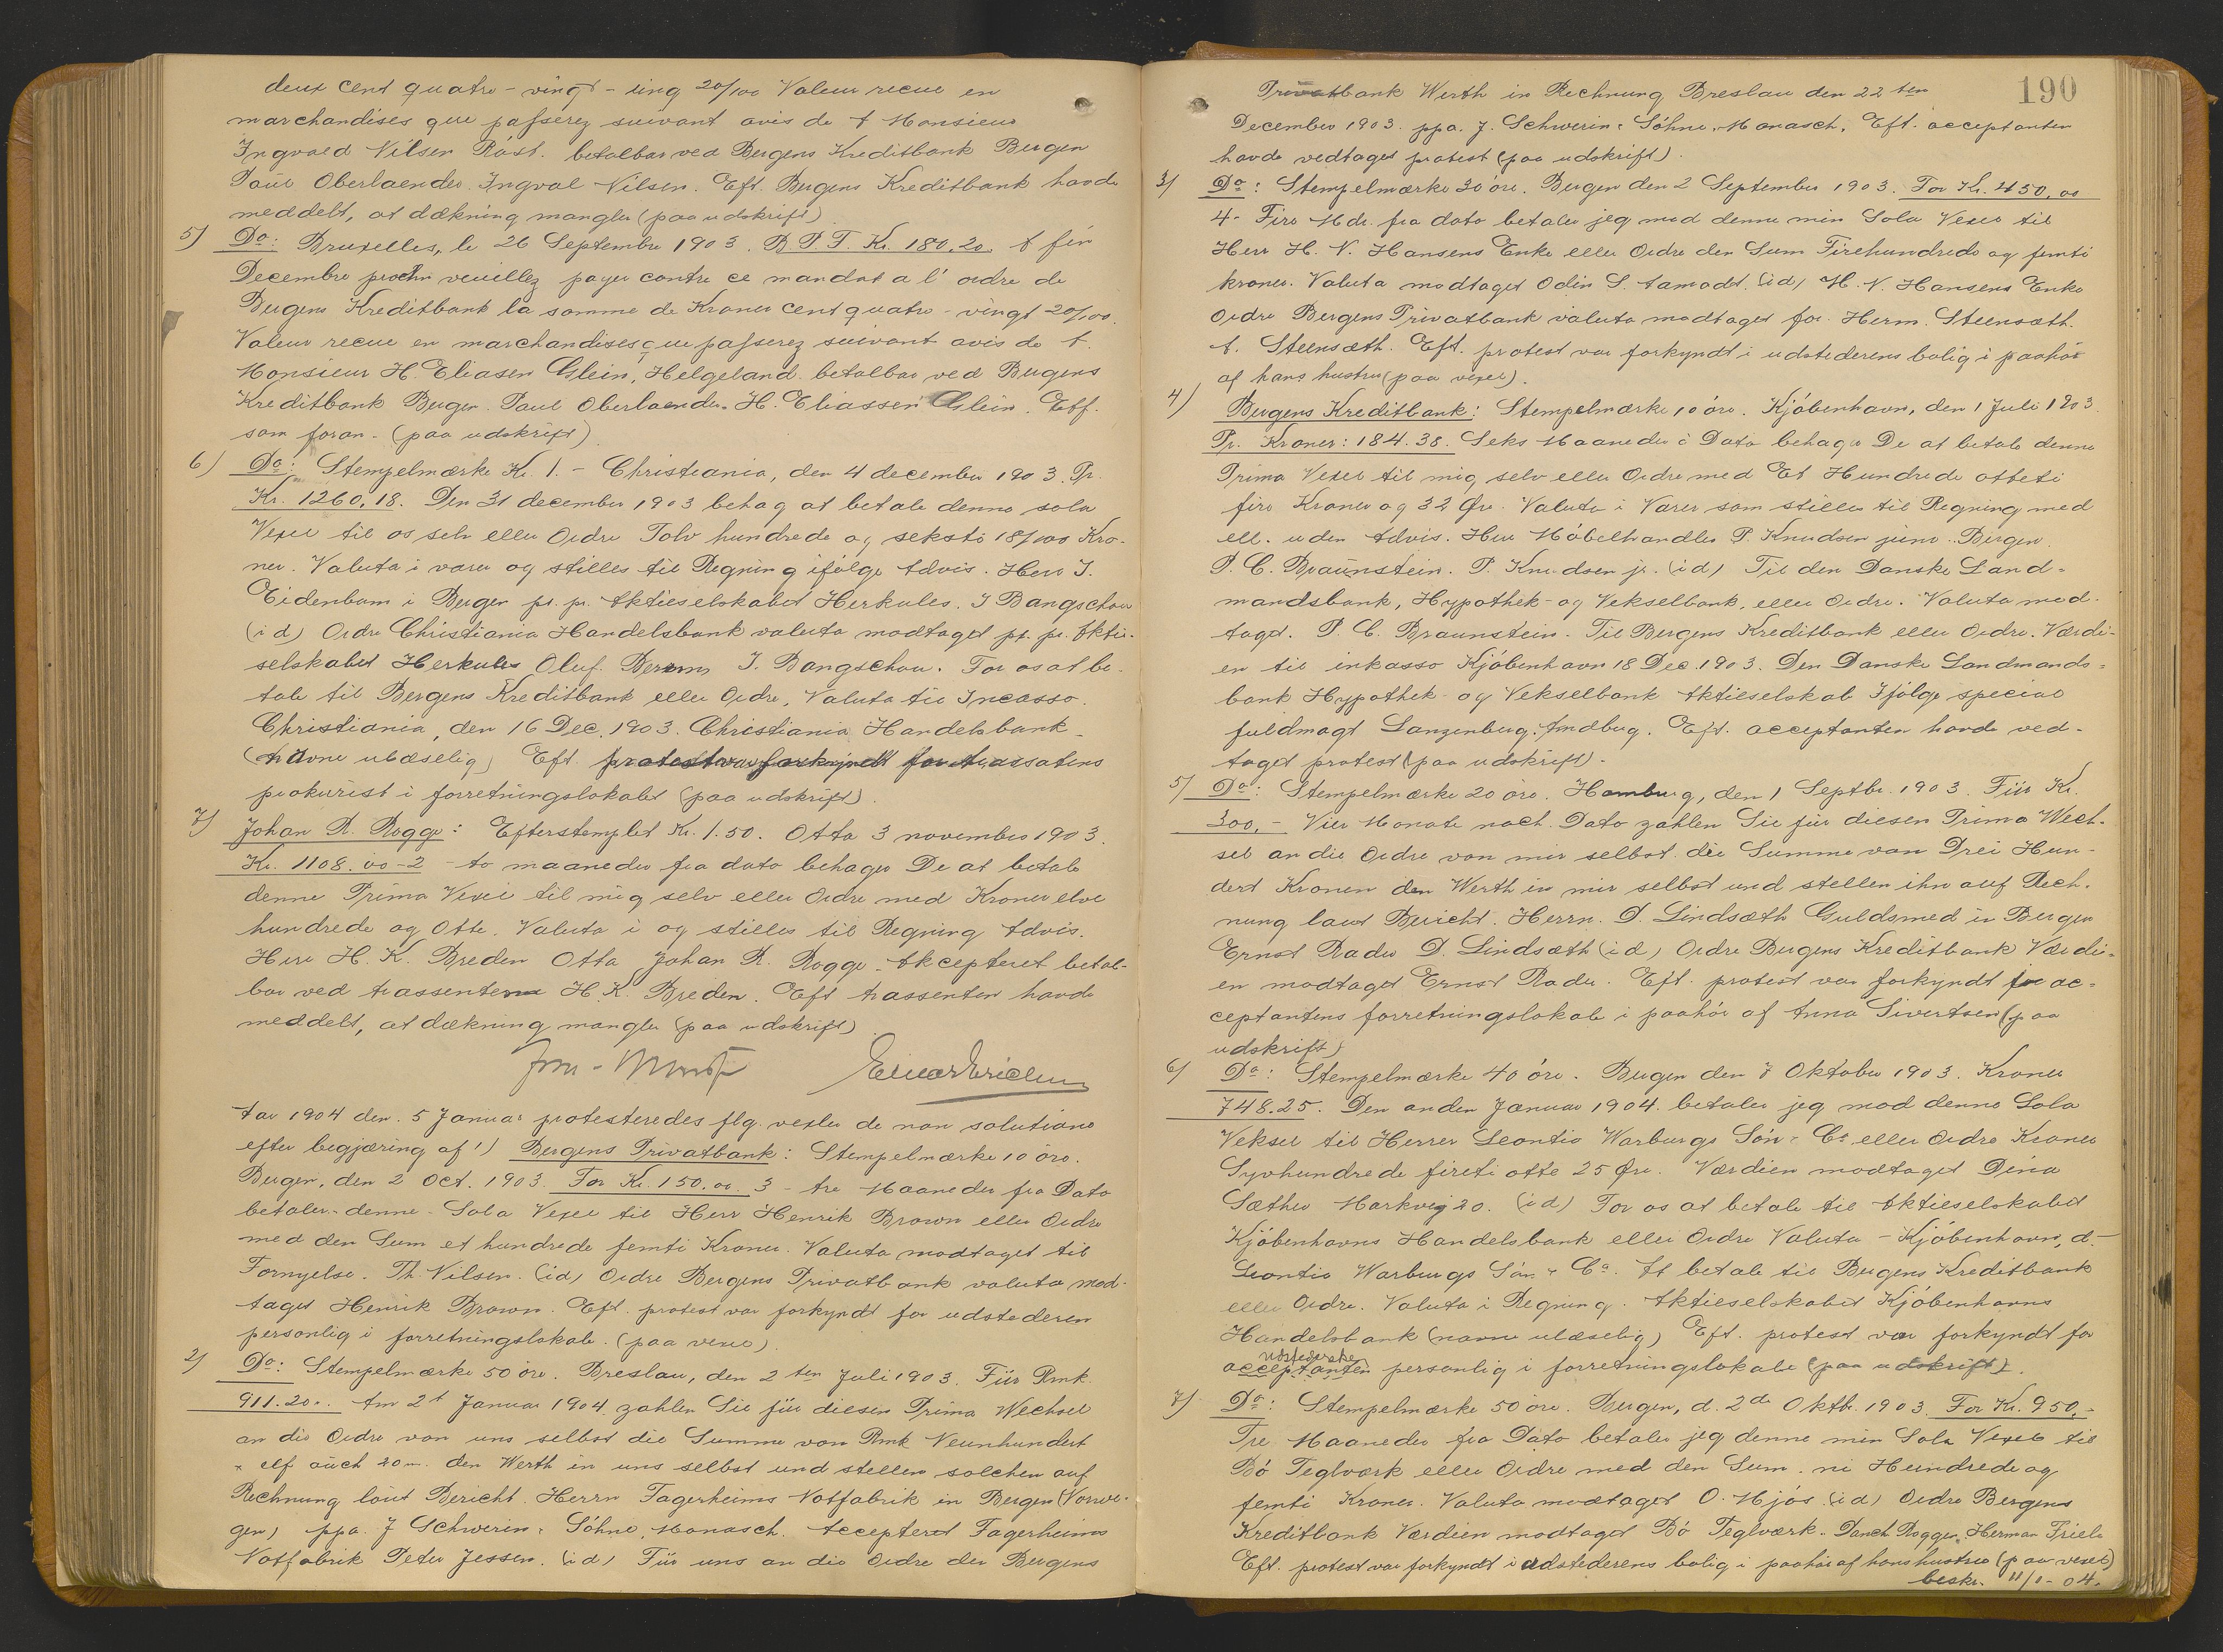 deux cent quatre-vingt-ung 20/100 Valeur recue en
marchandises que passerez suivant avis de A Monsieur
Ingvald Nilsen Röst. betalbar ved Bergens Kreditbank Bergen
Paul Oberlaender. Ingval Nilsen. Eft. Bergens Kreditbank havde
meddelt, at dækning mangler (paa udskrift)
5) Do: Bruxelles, le 26 Septembre 1903. B. P. F. Kr. 180.20. A fin
Decembre prochn veuillez payer contre ce mandat a l'ordre de
Bergens Kreditbank la somme de Kroner cent quatre-vingt 20/100.
Valeur recue en marchandises que passerez suivant avis de A.
Monsieur H. Eliasen Glein, Helgeland. betalbar ved Bergens
Kreditbank Bergen. Paul Oberlaender. H. Eliassen Glein. Eft.
som foran. (paa udskrift)
6) Do: Stempelmærke Kr. 1.- Christiania, den 4 december 1903. Pr.
Kr. 1260.18. Den 31 december 1903 behag at betale denne sola
Vexel til os selv eller Ordre Tolv hundrede og seksti 18/100 Kro-
ner. Valuta i varer og stilles til Regning ifølge Advis. Herr J.
Eidenbom i Bergen pr. pr. Aktieselskabet Herkules. J Bangschou
(id) Ordre Christiania Handelsbank valuta modtaget pr. pr. Aktie-
selskabet Herkules Oluf J. Bangschou. For os at be-
tale til Bergens Kreditbank eller Ordre, Valuta til Incasso.
Christiania, den 16 Dec. 1903. Christiania Handelsbank
(navne ulæselig) Eft. protest var forkyndt for trassatens
prokurist i forretningslokalet (paa udskrift).
7) Johan R. Rogge: Efterstemplet Kr. 1.50. Otta 3 november 1903.
Kr. 1108.00 - 2 - to maaneder fra dato behager De at betale
denne Prima Vexel til mig selv eller Ordre med Kroner elve
hundrede og Otte. Valuta i og stilles til Regning Advis.
Herr H. K. Breden Otta Johan R. Rogge. Akcepteret betal-
bar ved trassenten H. K. Breden. Eft trassenten havde
meddelt, at dækning mangler (paa udskrift).
Aar 1904 den 5 Januar protesteredes flg. vexler de non solutione
efter begjæring af 1) Bergens Privatbank: Stempelmærke 10 øre.
Bergen, den 2 Oct. 1903. For Kr. 150.00. 3 - tre Maaneder fra Dato
betaler denne Sola Vexel til Herr Henrik Brown eller Ordre
med den Sum et hundrede femti Kroner. Valuta modtaget til
Fornyelse. Th. Nilsen. (id) Ordre Bergens Privatbank valuta mod-
taget Henrik Brown. Eft. protest var forkyndt for udstederen
personlig i forretningslokale. (paa vexel).
2) Do: Stempelmærke 50 øre. Breslau, den 2ten Juli 1903. Für Rmk.
911.20.. Am 2t Januar 1904 zahlen Sie für diesen Prima Wechsel
an die Ordre von uns selbst die Summe von Rmk Neunhundert
& elf auch 20 den Werth in uns selbst und stellen solchen auf
Rechnung laut Bericht. Herrn Fagerheims Notfabrik in Bergen (Norwe-
gen) ppa. J Schwerin & Söhne, Monasch. Accepteret Fagerheims
Notfabrik Peter Jessen. (id) Für uns an die Ordre der Bergens
190
Privatbank Werth in Rechnung Breslau den 22ten
December 1903. ppa. J. Schwerin & Söhne. Monasch. Eft. acceptanten
havde vedtaget protest (paa udskrift).
3) Do: Stempelmærke 30 øre. Bergen den 2 September 1903. For Kr. 450.00
4- Fire Mdr. fra dato betaler jeg mod denne min Sola Vexel til
Herr H. N. Hansens Enke eller Ordre den Sum Firehundrede og femti
kroner. Valuta modtaget Odin S. Aamodt. (id) H. N. Hansens Enke
Ordre Bergens Privatbank valuta modtaget for Herm. Steensæth.
A. Steensæth. Eft. protest var forkyndt i udstederens bolig i paahør
af hans hustru (paa vexel).
4) Bergens Kreditbank: Stempelmærke 10 øre. Kjøbenhavn, den 1 Juli 1903.
Pr. Kroner: 184.38. Seks Maaneder à Dato behager De at betale denne
Prima Vexel til mig selv eller Ordre med Et Hundrede otteti
fire Kroner og 32 Øre. Valuta i Varer som stilles til Regning med
ell. uden Advis. Herr Møbelhandler P. Knudsen junr. Bergen.
P. C. Braunstein. P. Knudsen jr. (id) Til den Danske Land-
mandsbank, Hypothek- og Vekselbank, eller Ordre. Valuta mod-
taget. P. C. Braunstein. Til Bergens Kreditbank eller Ordre. Værdi-
en til inkasso Kjøbenhavn 18 Dec. 1903. Den Danske Landmands-
bank Hypothek- og Vekselbank Aktieselskab Ifølge special
fuldmagt Lanzenberg. Eft. acceptanten havde ved-
taget protest (paa udskrift).
5) Do: Stempelmærke 20 øre. Hamburg, den 1 Septbr. 1903. Für Kr.
300,- Vier Monate nach Dato zahlen Sie für diesen Prima Wech-
sel an die Ordre von mir selbst die Summe von Drei Hun-
dert Kronen den Werth in mir selbst und stellen ihn auf Rech-
nung laut Bericht. Herrn. D. Lindsæth Guldsmed in Bergen
Ernst Rader D. Lindsæth (id) Ordre Bergens Kreditbank Værdi-
en modtaget Ernst Rader. Eft. protest var forkyndt for ac-
ceptantens forretningslokale i paahør af Anna Sivertsen (paa
udskrift)
6) Do: Stempelmærke 40 øre. Bergen den 7 Oktober 1903. Kroner
748.25. Den anden Januar 1904. betaler jeg mod denne Sola
Veksel til Herrer Leontio Warburgs Søn & Co eller Ordre Kroner
Syvhundrede fireti otte 25 Øre. Værdien modtaget Dina
Sæther Markvej 20. (id) For os at betale til Aktieselskabet
Kjøbenhavns Handelsbank eller Ordre Valuta - Kjøbenhavn, d.-
Leontio Warburgs Søn & Co. At betale til Bergens Kreditbank
eller Ordre. Valuta i Regning. Aktieselskabet Kjøbenhavns
Handelsbank (navne ulæselig) Eft. protest var forkyndt for
udstedersken
acceptanten personlig i forretningslokale (paa udskrift).
7) Do: Stempelmærke 50 øre. Bergen, d. 2de Oktb. 1903. For Kr. 950.-
Tre Maaneder fra Dato betaler jeg denne min Sola Vexel til
Bö Teglværk eller Ordre med den Sum ni Hundrede og
femti Kroner. Valuta modtaget O. Mjøs (id) Ordre Bergens
Kreditbank Værdien modtaget Bö Teglværk. Danch Rogge. Herman Friele
Eft. protest var forkyndt i udstederens bolig i paahør af hans hustru (paa vexel)
beskr. 11/1-04.